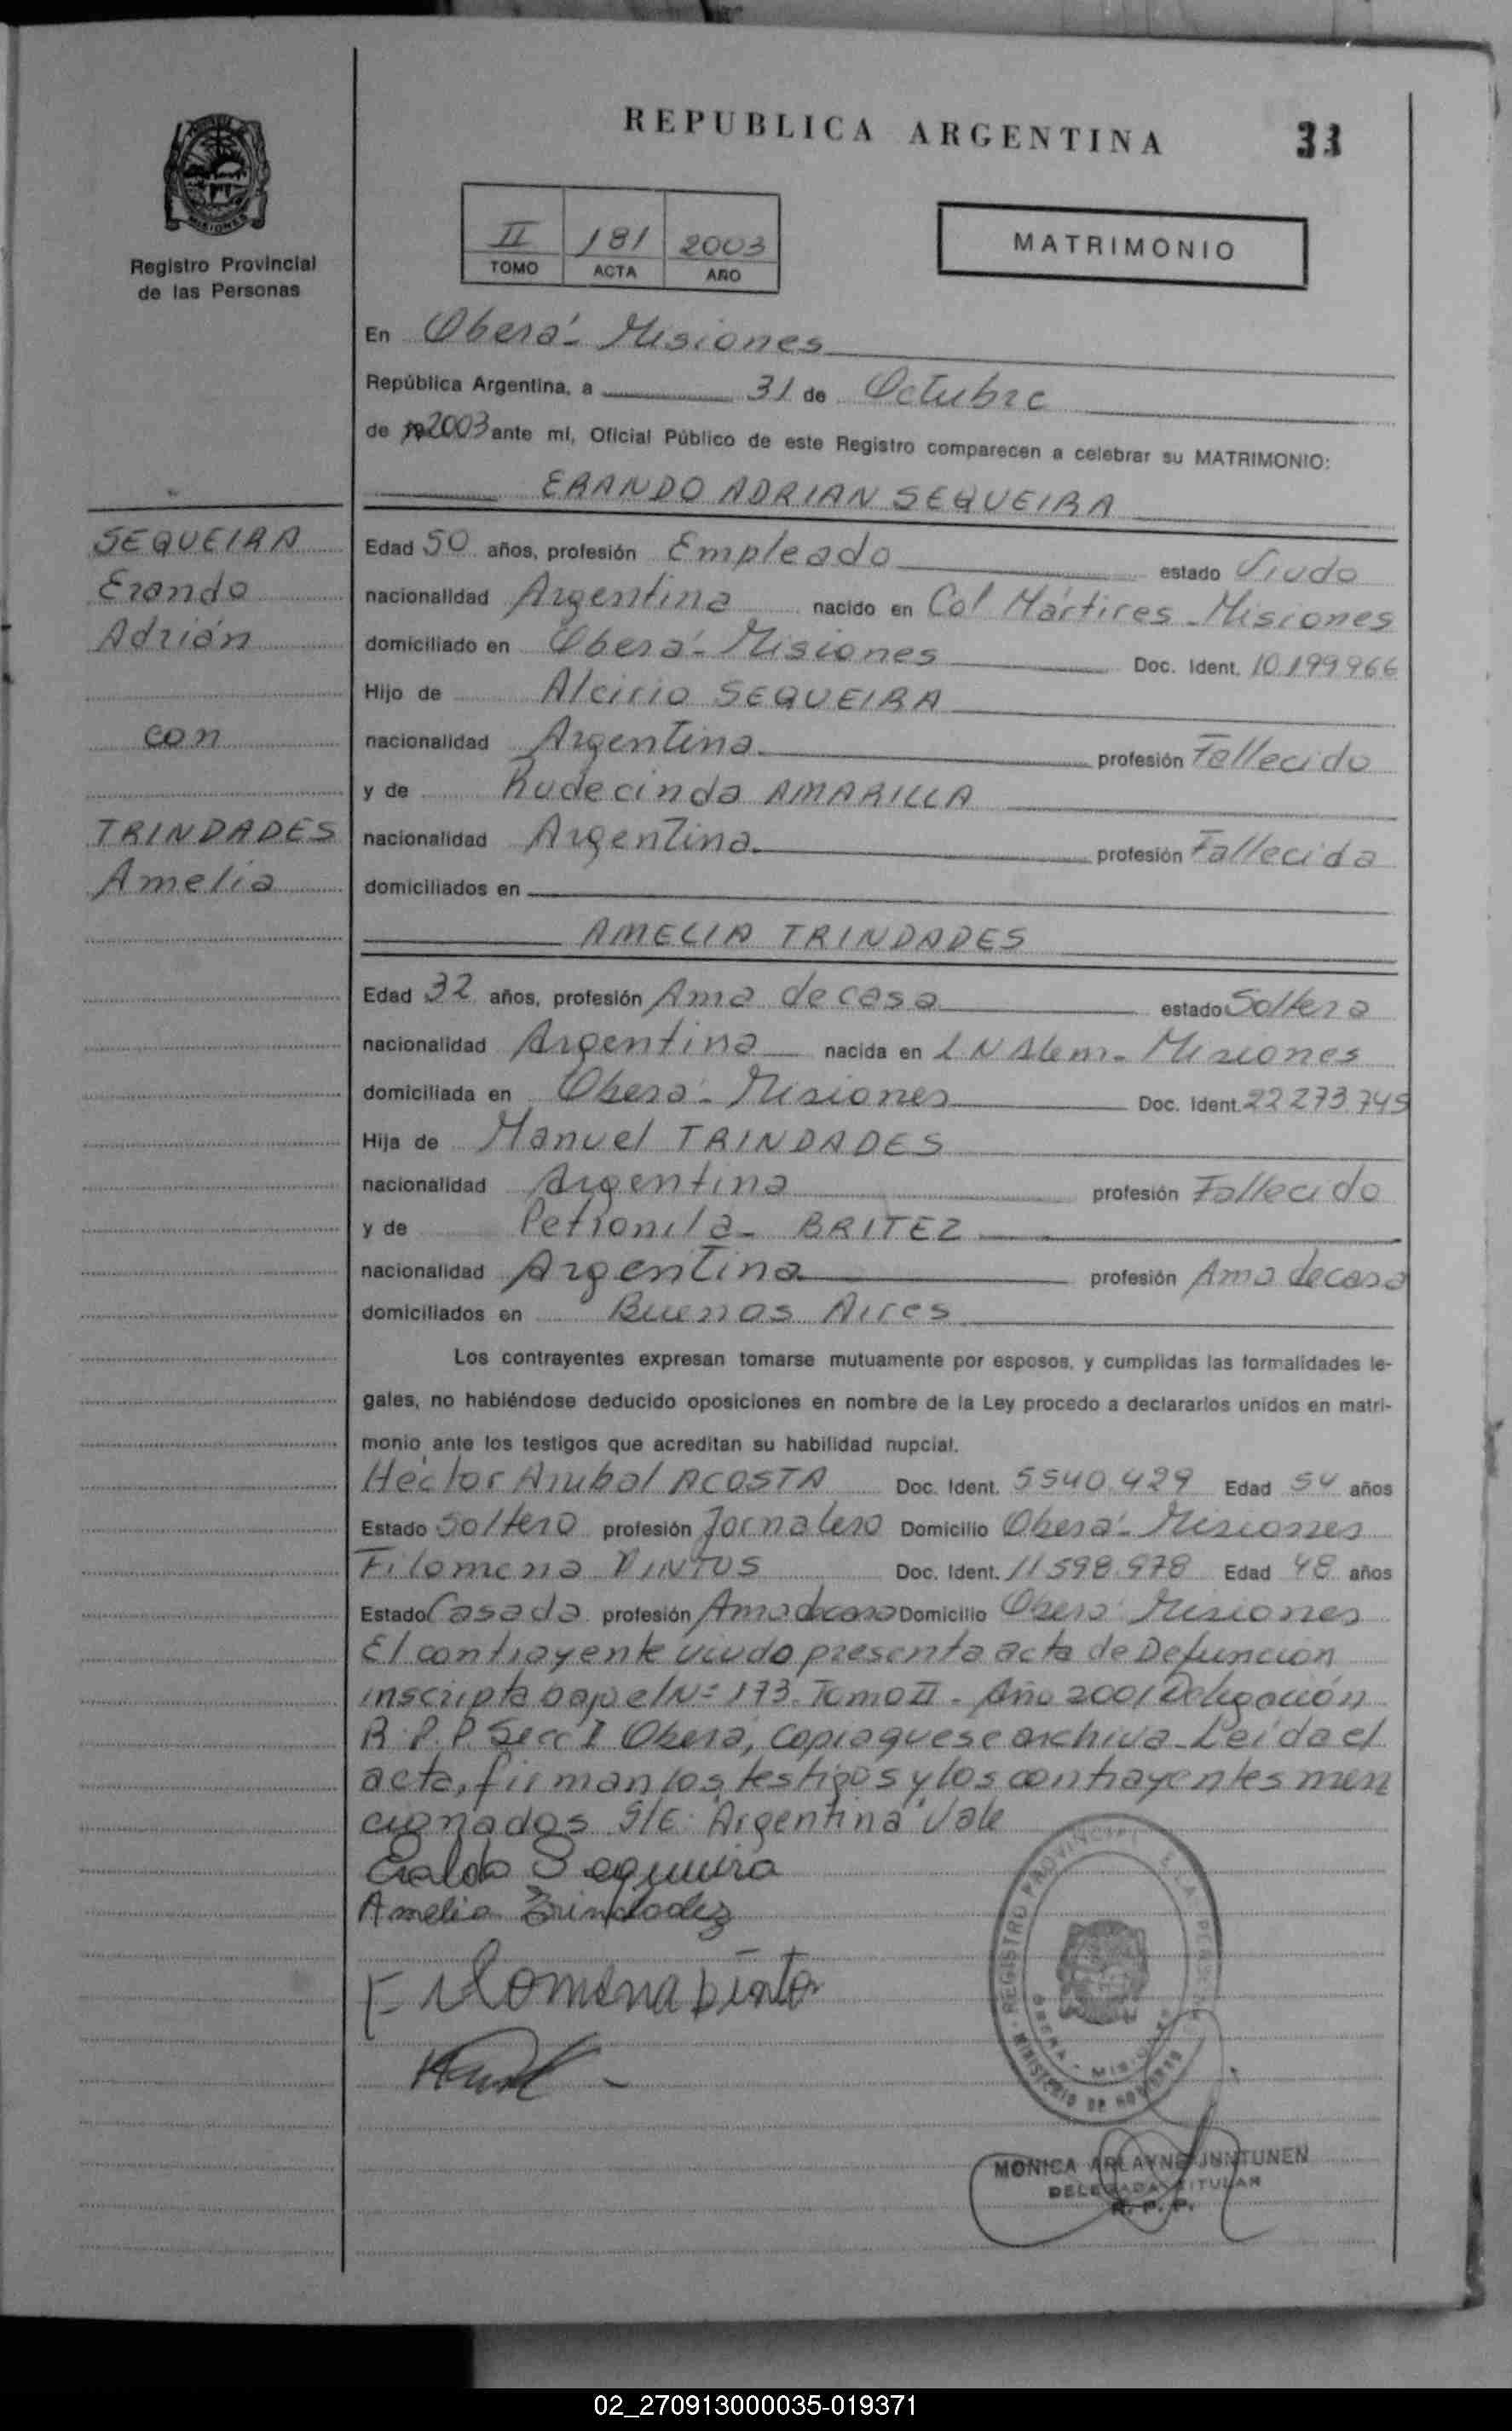 REPUBLICA ARGENTINA
33
Registro Provincial
de las Personas
II 181 2003
TOMO ACTA AÑO
MATRIMONIO
En Oberá - Misiones
República Argentina, a 31 de Octubre
de 2003 ante mí, Oficial Público de este Registro comparecen a celebrar su MATRIMONIO:
ERANDO ADRIAN SEQUEIRA
SEQUEIRA
Erando
Adrián
con
TRINDADES
Amelia
Edad 50 años, profesión Empleado estado Viudo
nacionalidad Argentina nacido en Col Mártires - Misiones
domiciliado en Oberá - Misiones Doc. Ident. 10.199.966
Hijo de Alcirio SEQUEIRA
nacionalidad Argentina profesión Fallecido
y de Rudecinda AMARILLA
nacionalidad Argentina profesión Fallecida
domiciliados en
AMELIA TRINDADES
Edad 32 años, profesión Ama de casa estado Soltera
nacionalidad Argentina nacida en L N Alem - Misiones
domiciliada en Oberá - Misiones Doc. Ident. 22 273 745
Hija de Manuel TRINDADES
nacionalidad Argentina profesión Fallecido
y de Petronila - BRITEZ
nacionalidad Argentina profesión Ama de casa
domiciliados en Buenos Aires
Los contrayentes expresan tomarse mutuamente por esposos, y cumplidas las formalidades le-
gales, no habiéndose deducido oposiciones en nombre de la Ley procedo a declararlos unidos en matri-
monio ante los testigos que acreditan su habilidad nupcial.
Héctor Anibal ACOSTA Doc. Ident. 5540.429 Edad 54 años
Estado Soltero profesión Jornalero Domicilio Oberá - Misiones
Filomena PINTOS Doc. Ident. 11 598.978 Edad 48 años
Estado Casada profesión Ama de casa Domicilio Oberá Misiones
El contrayente viudo presenta acta de Defunción
inscripta bajo el Nº 173. Tomo II - Año 2001 Delegación
R.P.P. Secc I Oberá, copia que se archiva - Leída el
acta, firman los testigos y los contrayentes men
cionados S/E: "Argentina" Vale
Sequeira
Amelia Trindadez
Filomena pinto
REGISTRO PROVINCIAL DE LAS PERSONAS
OBERA - MISIONES
MINISTERIO DE GOBIERNO
MONICA ARLAYNE JUNTUNEN
DELEGADA TITULAR
R. P. P.
02_270913000035-019371